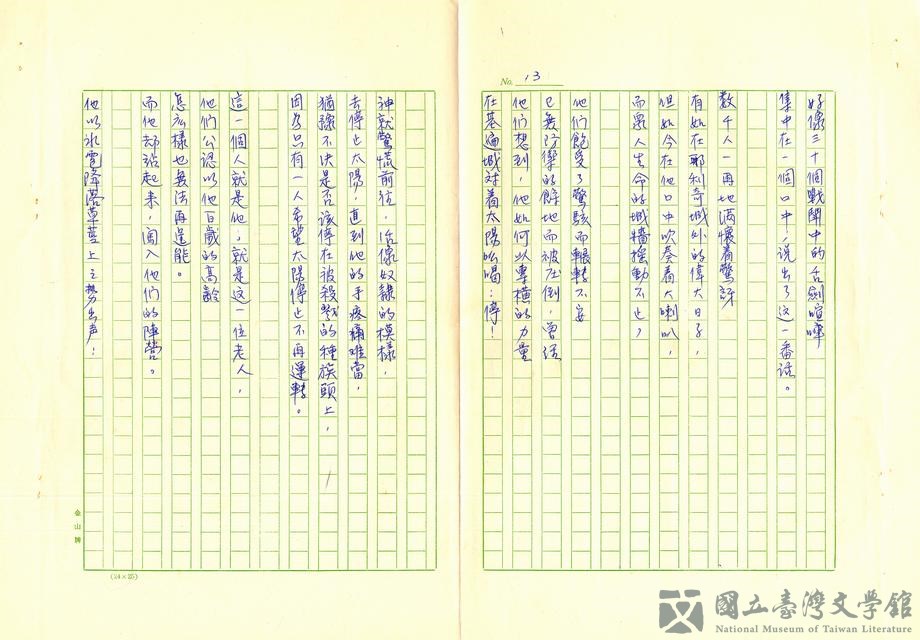 No. 13
好像三十個戰鬪中的舌劍喧嘩
集中在一個口中，說出了這一番話。
數千人一再地滿懷着驚訝
有如在耶利奇城外的偉大日子，
但如今在他口中吹奏着大喇叭，
而眾人生命的城牆搖動不止，
他們飽受了驚駭而輾轉不安
已無防禦的餘地而被壓倒，曾經
他們想到，他如何以專橫的力量
在基遍城对着太陽吆喝：停！
神就驚慌前往，活像奴隸的模樣，
去停止太陽，直到他的手疼痛难當，
猶豫不決是否該停在被殺戮的種族頭上，
因為只有一人希望太陽停止不再運轉。
這一個人就是他；就是这一位老人，
他們公認以他百歲的高齡
怎么樣也無法再逞能。
而他却站起来，闖入他們的陣營。
他以冰雹降落草莖上之勢出声：
金山牌
(24×25)
國立臺灣文學館
National Museum of Taiwan Literature